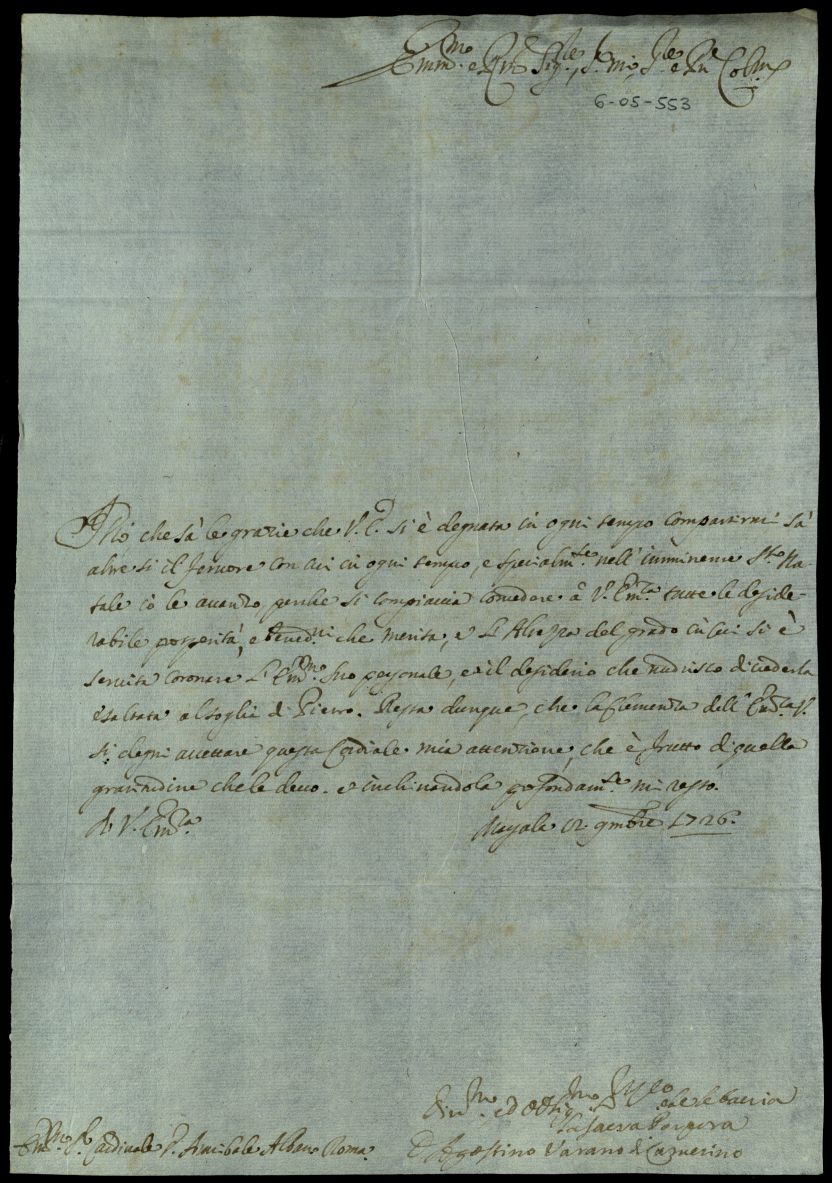 Emm.mo e Rmo Sig.re, S.r mio P.re e Pne Colm.o
6-05-553
Dio che sà le grazie che V. E. si è degnata in ogni tempo compartirmi sà
altresi il fervore con cui in ogni tempo, e specialm.te nell'imminente S.to Na-
tale io le avanzo, perche si compiaccia concedere à V. Em.za tutte le deside-
rabile prosperità, e che merita, e L'Altezza del grado in cui si è
servita coronare L' Em.mo suo personale, e il desiderio che nudrisco di vederla
esaltata al soglio di Pietro. Resta dunque, che la Clemenza dell' Em.za V.
si degni accettare questa Cordiale mia attentione, che è frutto di quella
gratitudine che le devo. e inchinandola profondam.te mi resto.
A V. Em.za
Napole 9mbre 1726.
Div.mo ed Obblig.mo che le bacia
la sacra Porpora
D Agostino Varano di Camerino
Em.mo S.r Cardinale D. Annibale Albano Roma.